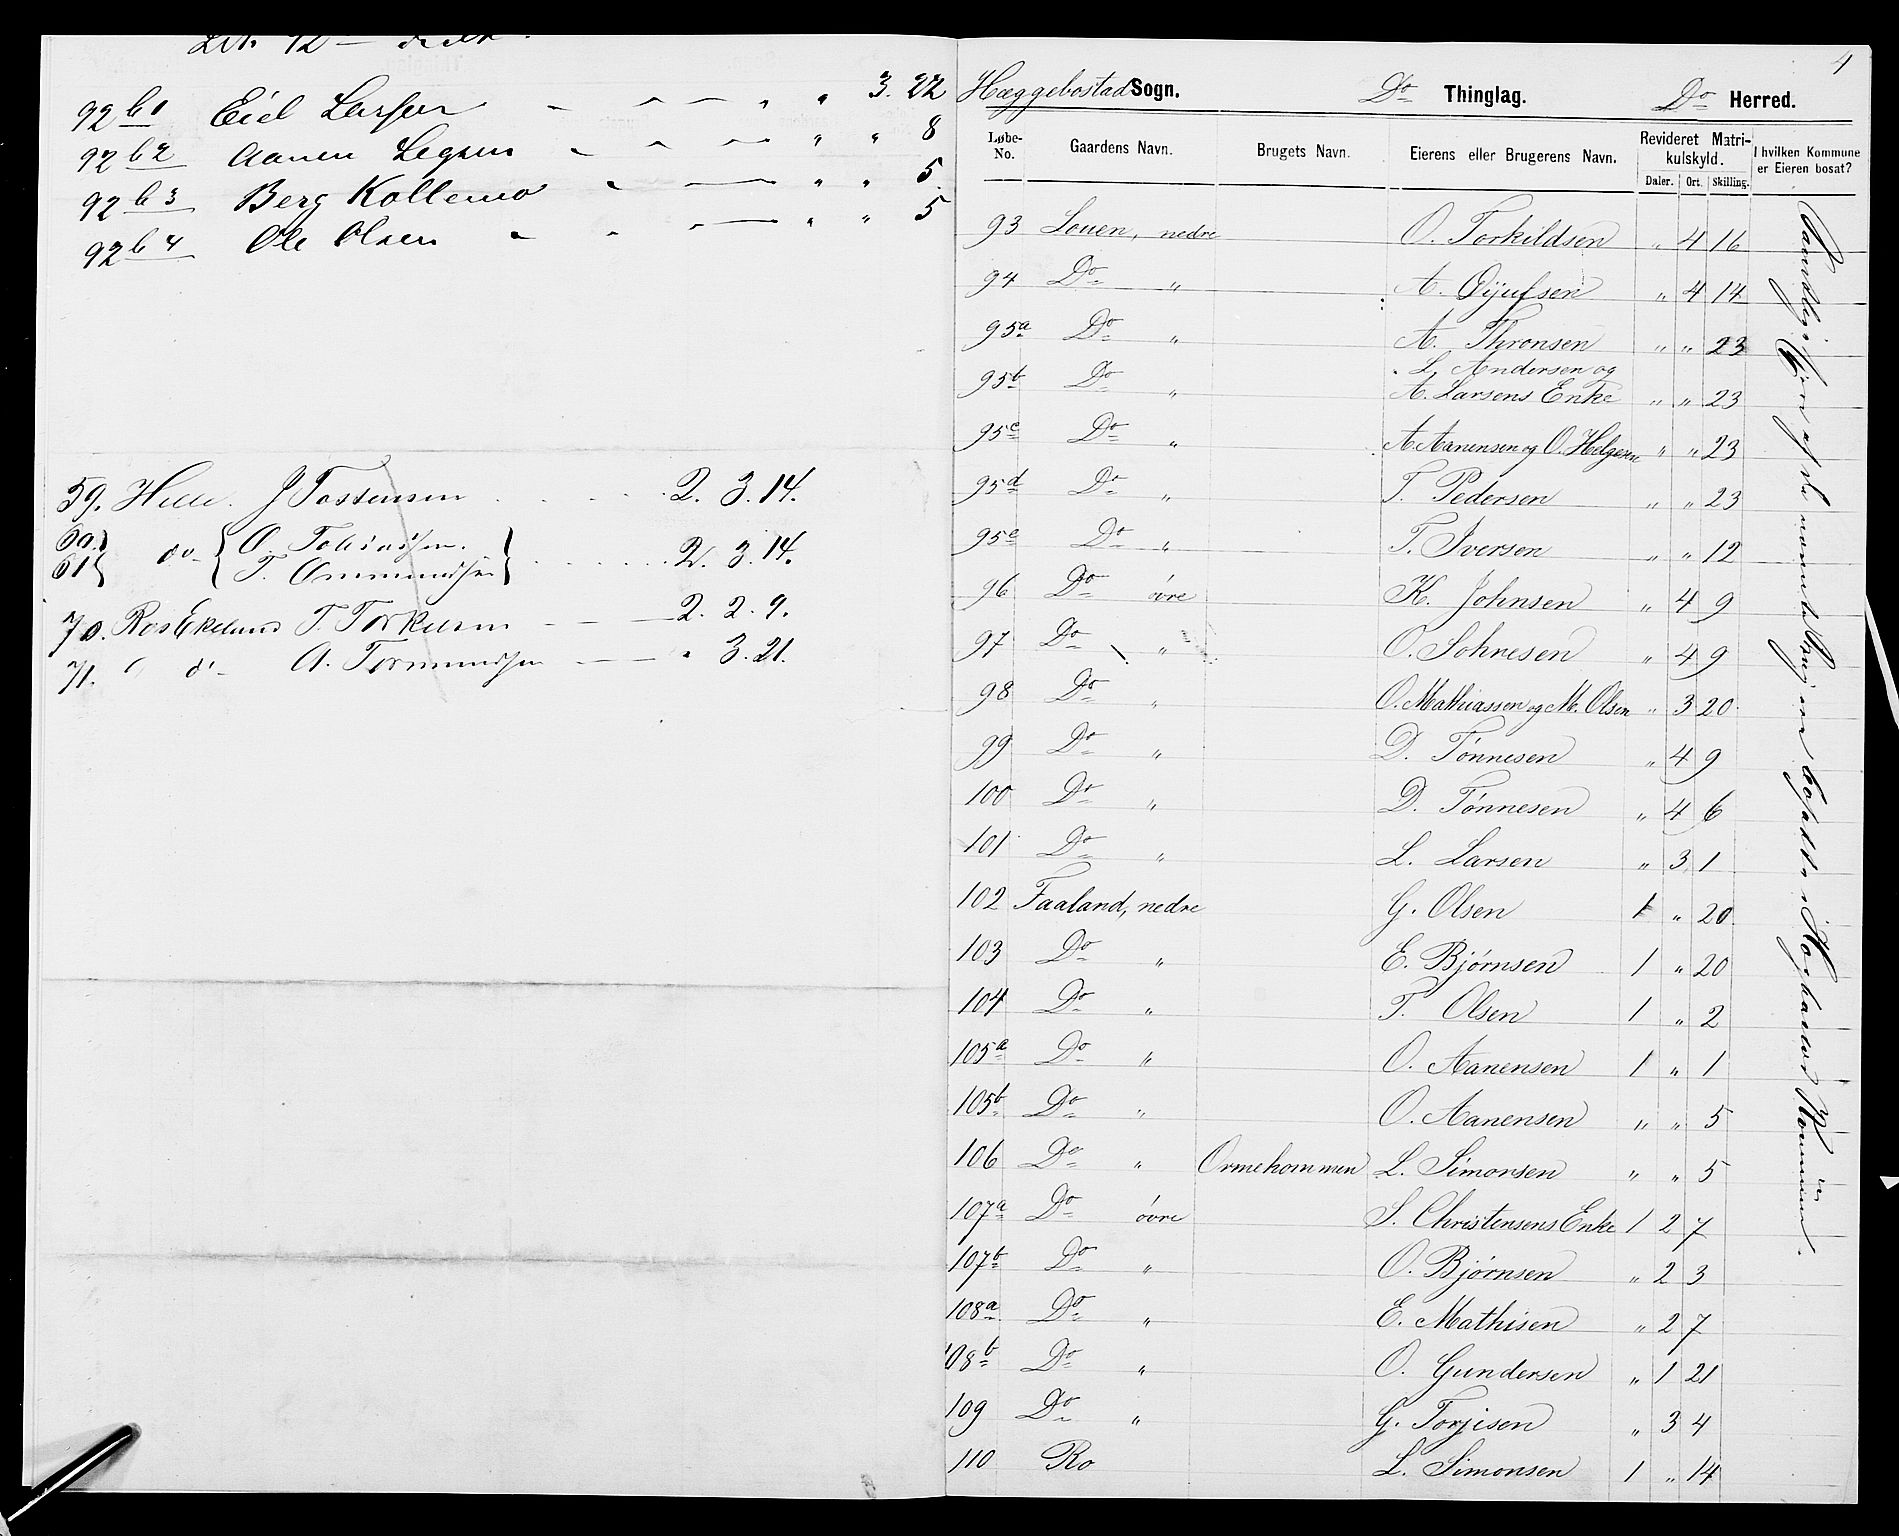 92 b1 Eiel Larsen - - - " " 3. 22
92 b2 Aanen - - - " " 8
92 b3 Berg Kollemo - - " " 5
92 b4 Ole Olsen - - - " " 5
59. J Tostensen . . . . . 2. 3. 14.
60. 61 do { O.
T. } . . . . . 2. 3. 14.
70. T. Torkelsen - - 2. 2. 9.
71. " do - A. Tormundsen - - " 3. 21.
4
Hæggebostad Sogn. Do Thinglag. Do Herred.
Løbe-No. Gaardens Navn. Brugets Navn. Eierens eller Brugerens Navn. Revideret Matrikulskyld. I hvilken Kommune er Eieren bosat?
Daler. Ort. Skilling.
93 Louen, nedre O. Torkildsen " 4 16
94 Do " A. Øijufsen " 4 14
95a Do " A. Thronsen " " 23
95b Do " L. Andersen og
A. Larsens Enke " " 23
95c Do " A. Aanensen og O. Helgesen " " 23
95d Do " T. Pedersen " " 23
95e Do " T. Iversen " " 12
96 Do øvre K. Johnsen " 4 9
97 Do " O. Sohnesen " 4 9
98 Do " O. Mathiassen og M. Olsen " 3 20
99 Do " D. Tønnesen " 4 9
100 Do " D. Tønnesen " 4 6
101 Do " L. Larsen " 3 1
102 Faaland, nedre G. Olsen 1 " 20
103 Do " E. Bjørnsen 1 " 20
104 Do " T. Olsen 1 " 2
105a Do " O. Aanensen 1 " 1
105b Do " O. Aanensen " " 5
106 Do " Ormehommen L. Simonsen " " 5
107a Do øvre S. Christensens Enke 1 2 7
107b Do " O. Bjørnsen " 2 3
108a Do " E. Mathisen " 2 7
108b Do " O. Gundersen " 1 21
109 Do " G. Torjisen " 3 4
110 Ro L. Simonsen 1 " 14
Samtlige Eiere af de nævnte Brug ere bosatte i Kommune.